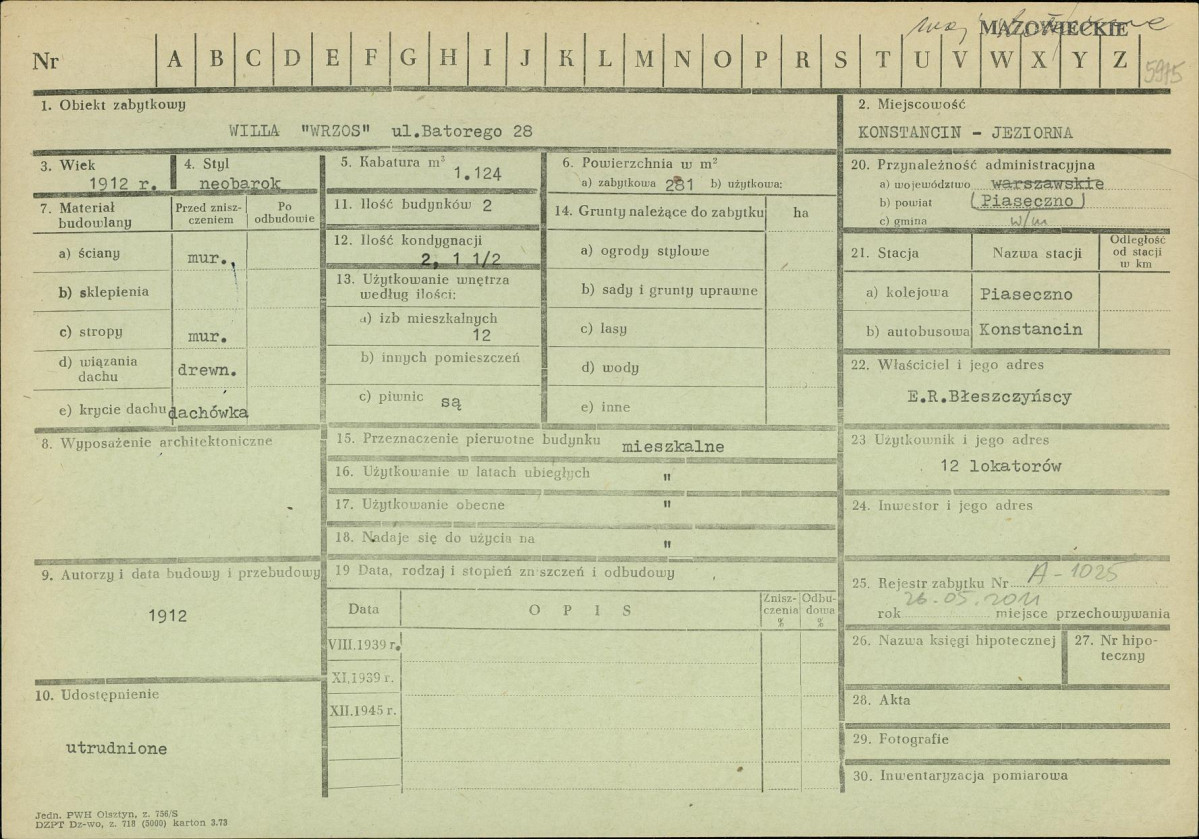 MAZOWIECKIE
Nr A B C D E F G H I J K L M N O P R S T U V W X Y Z 5915
1. Obiekt zabytkowy
WILLA "WRZOS" ul.Batorego 28
2. Miejscowość
KONSTANCIN - JEZIORNA
3. Wiek
1912 r.
4. Styl
neobarok
5. Kabatura m³
1.124
6. Powierzchnia w m²
a) zabytkowa 281 b) użytkowa:
20. Przynależność administracyjna
a) województwo warszawskie
b) powiat (Piaseczno)
c) gmina w/m
7. Materiał budowlany
Przed zniszczeniem
Po odbudowie
a) ściany mur.,
b) sklepienia
c) stropy mur.
d) wiązania dachu drewn.
e) krycie dachu dachówka
11. Ilość budynków 2
12. Ilość kondygnacji
2, 1 1/2
13. Użytkowanie wnętrza
według ilości:
a) izb mieszkalnych
12
b) innych pomieszczeń
c) piwnic są
14. Grunty należące do zabytku ha
a) ogrody stylowe
b) sady i grunty uprawne
c) lasy
d) wody
e) inne
21. Stacja Nazwa stacji Odległość od stacji w km
a) kolejowa Piaseczno
b) autobusowa Konstancin
22. Właściciel i jego adres
E.R.Błeszczyńscy
8. Wyposażenie architektoniczne
15. Przeznaczenie pierwotne budynku mieszkalne
16. Użytkowanie w latach ubiegłych "
17. Użytkowanie obecne "
18. Nadaje się do użycia na "
23 Użytkownik i jego adres
12 lokatorów
24. Inwestor i jego adres
9. Autorzy i data budowy i przebudowy
1912
19 Data, rodzaj i stopień zniszczeń i odbudowy
Data O P I S Zniszczenia % Odbudowa %
VIII.1939 r.
XI.1939 r.
XII.1945 r.
25. Rejestr zabytku Nr A-1025
26.05.2011
rok miejsce przechowywania
26. Nazwa księgi hipotecznej
27. Nr hipoteczny
10. Udostępnienie
utrudnione
28. Akta
29. Fotografie
30. Inwentaryzacja pomiarowa
Jedn. PWH Olsztyn, z. 756/S
DZPT Dz-wo, z. 718 (5000) karton 3.73